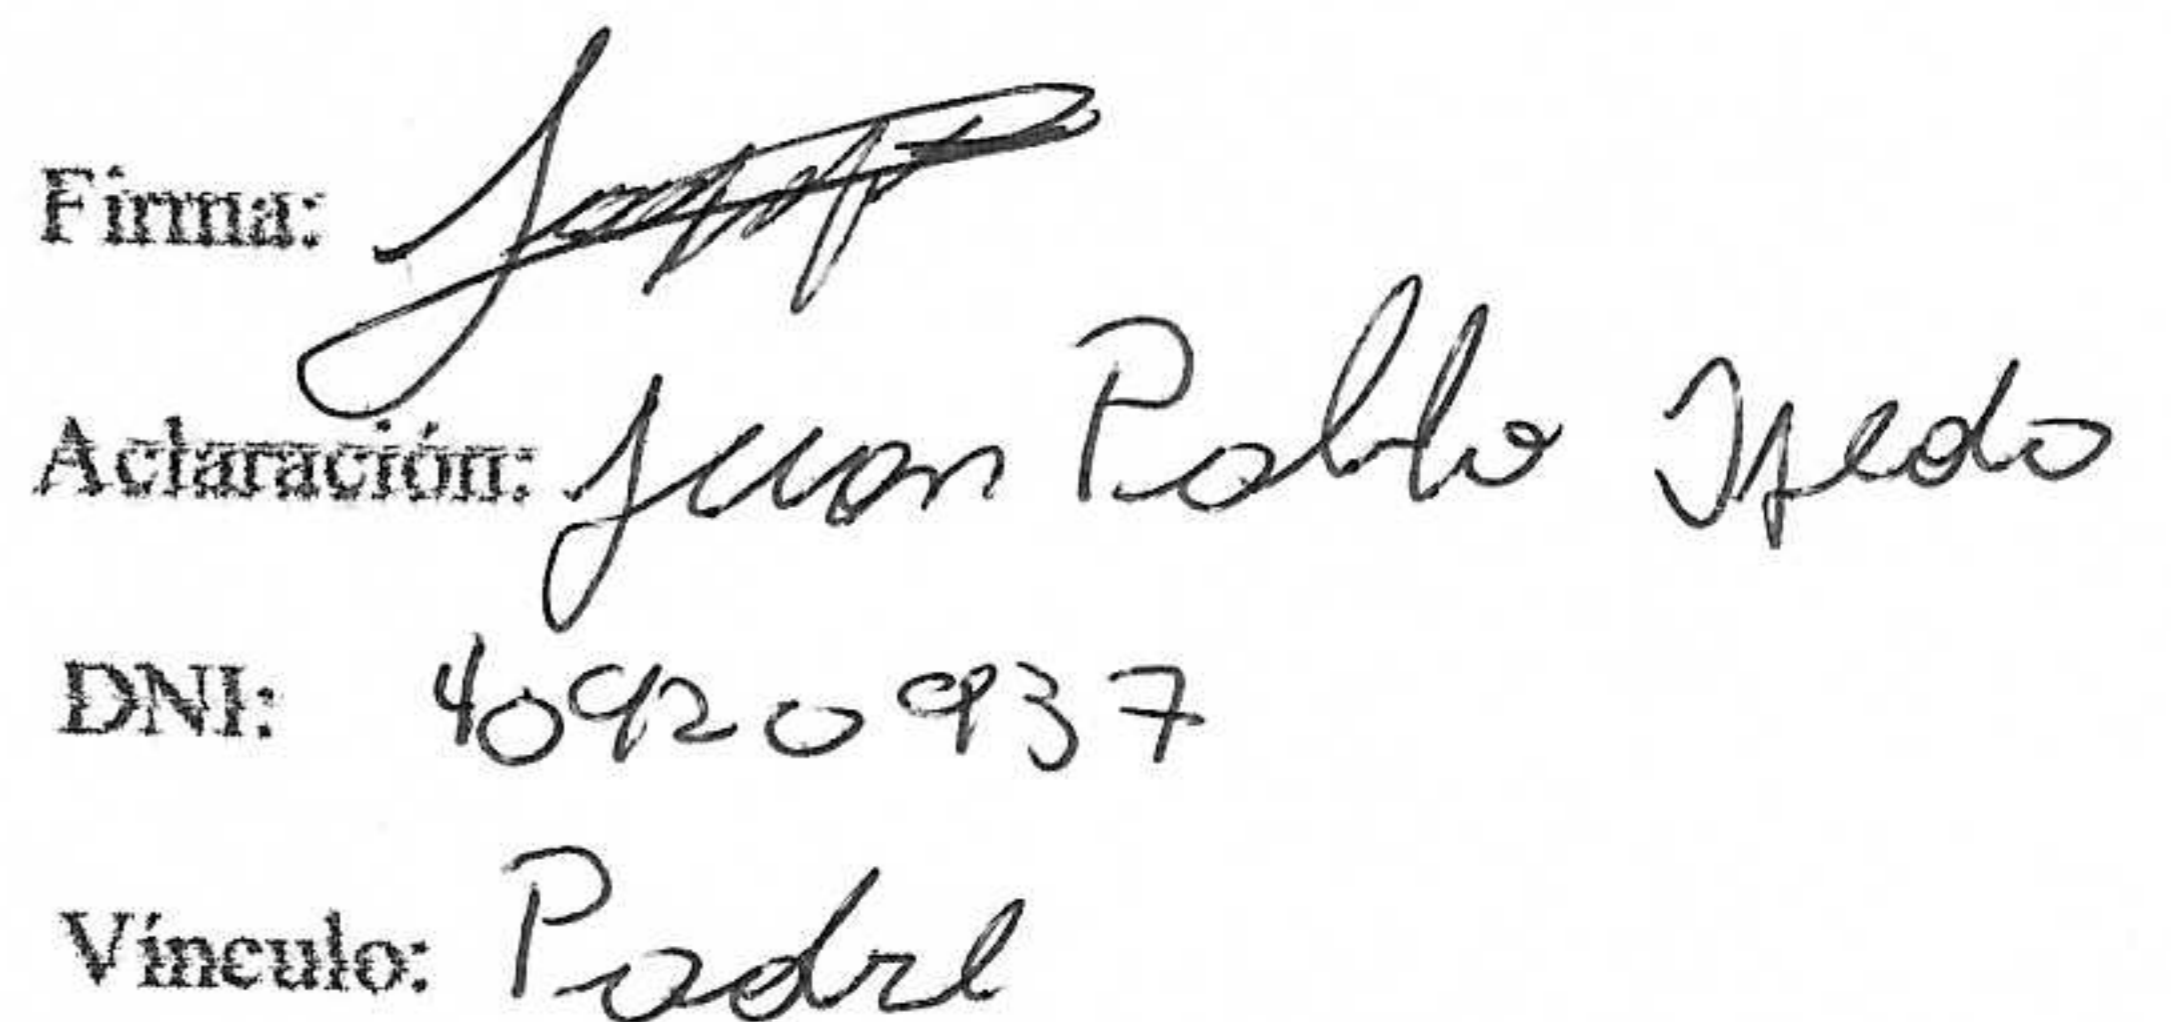 Firma:
Aclaración: Juan Pablo
DNI: 40920937
Vínculo: Padre